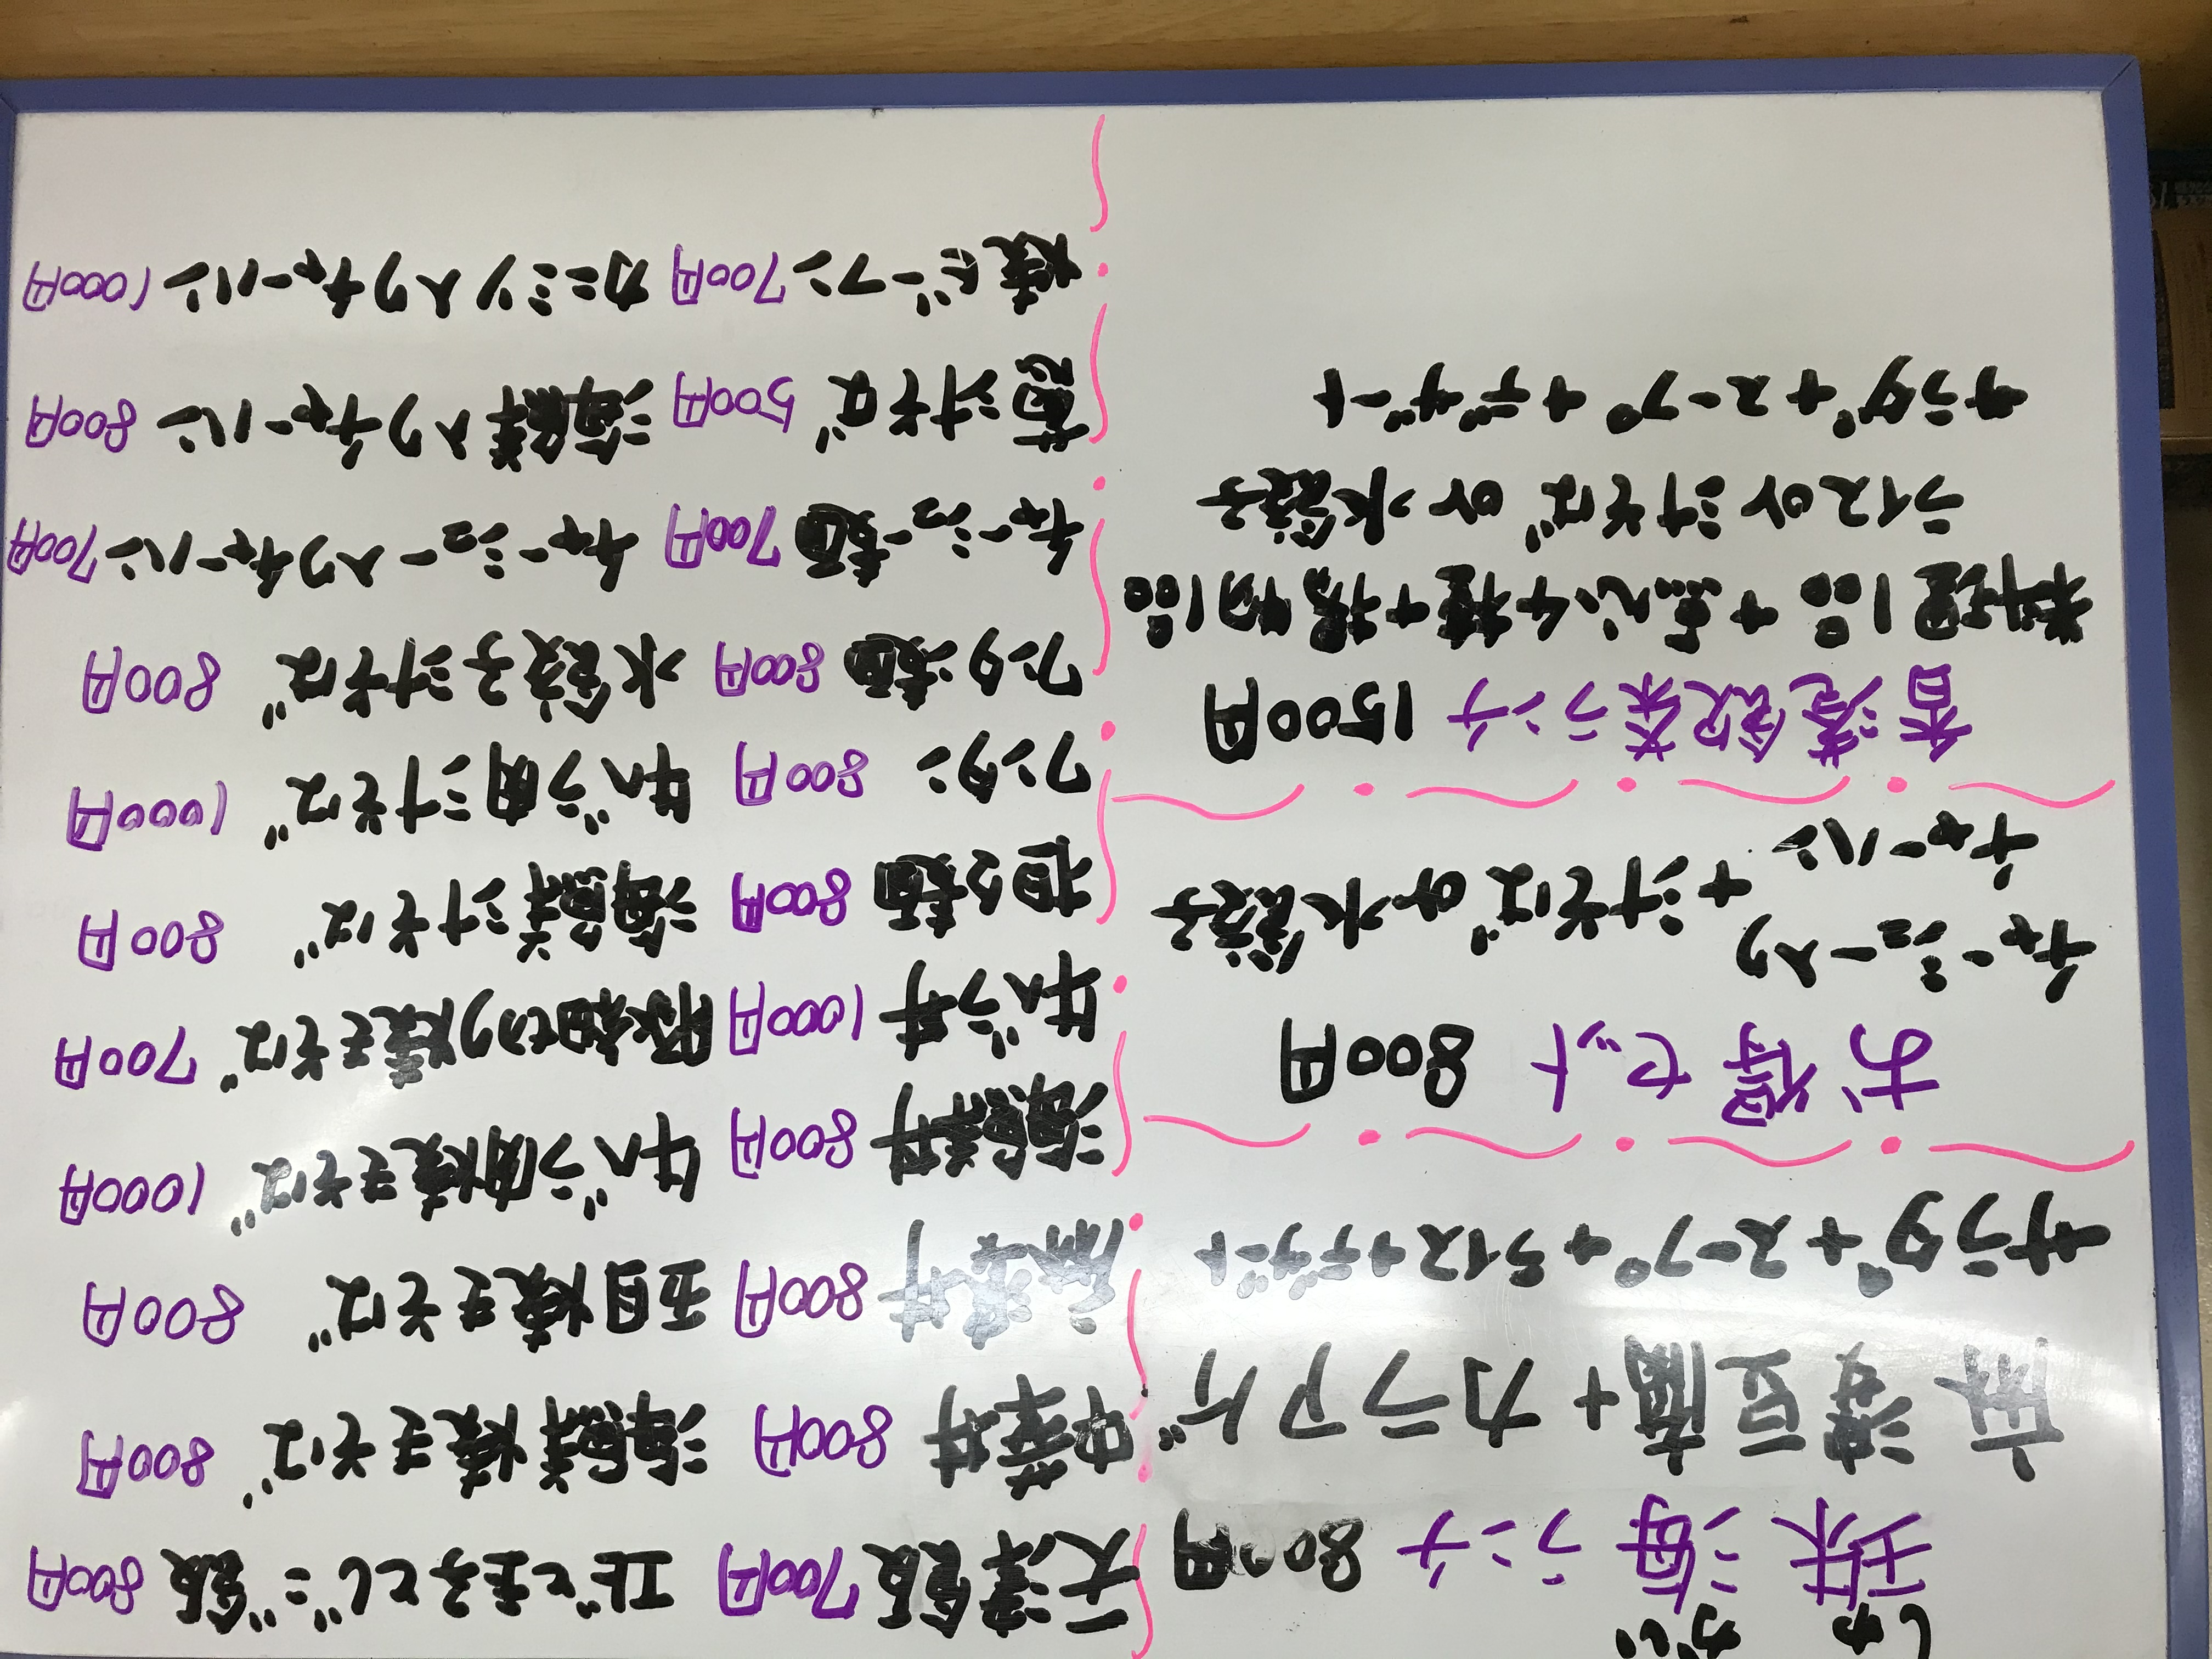 しゅ がい
珠海ランチ 800円
麻婆豆腐+カラアゲ
サラダ+スープ+ライス+デザート
お得セット 800円
チャーシュー入り
チャーハン +汁そば or 水餃子
香港飲茶ランチ 1500円
料理1品+点心4種+揚物1品
ライス or 汁そば or 水餃子
サラダ+スープ+デザート
天津飯 700円 エビと玉子とじご飯 800円
中華丼 800円 海鮮焼きそば 800円
麻婆丼 800円 五目焼きそば 800円
海鮮丼 800円 牛バラ肉焼きそば 1000円
牛バラ丼 1000円 豚細切り焼きそば 700円
担々麺 800円 海鮮汁そば 800円
ワンタン 800円 牛バラ肉汁そば 1000円
ワンタン麺 800円 水餃子汁そば 800円
チャーシュー麺 700円 チャーシュー入りチャーハン 700円
葱汁そば 500円 海鮮入りチャーハン 800円
焼ビーフン 700円 カニミソ入りチャーハン 1000円